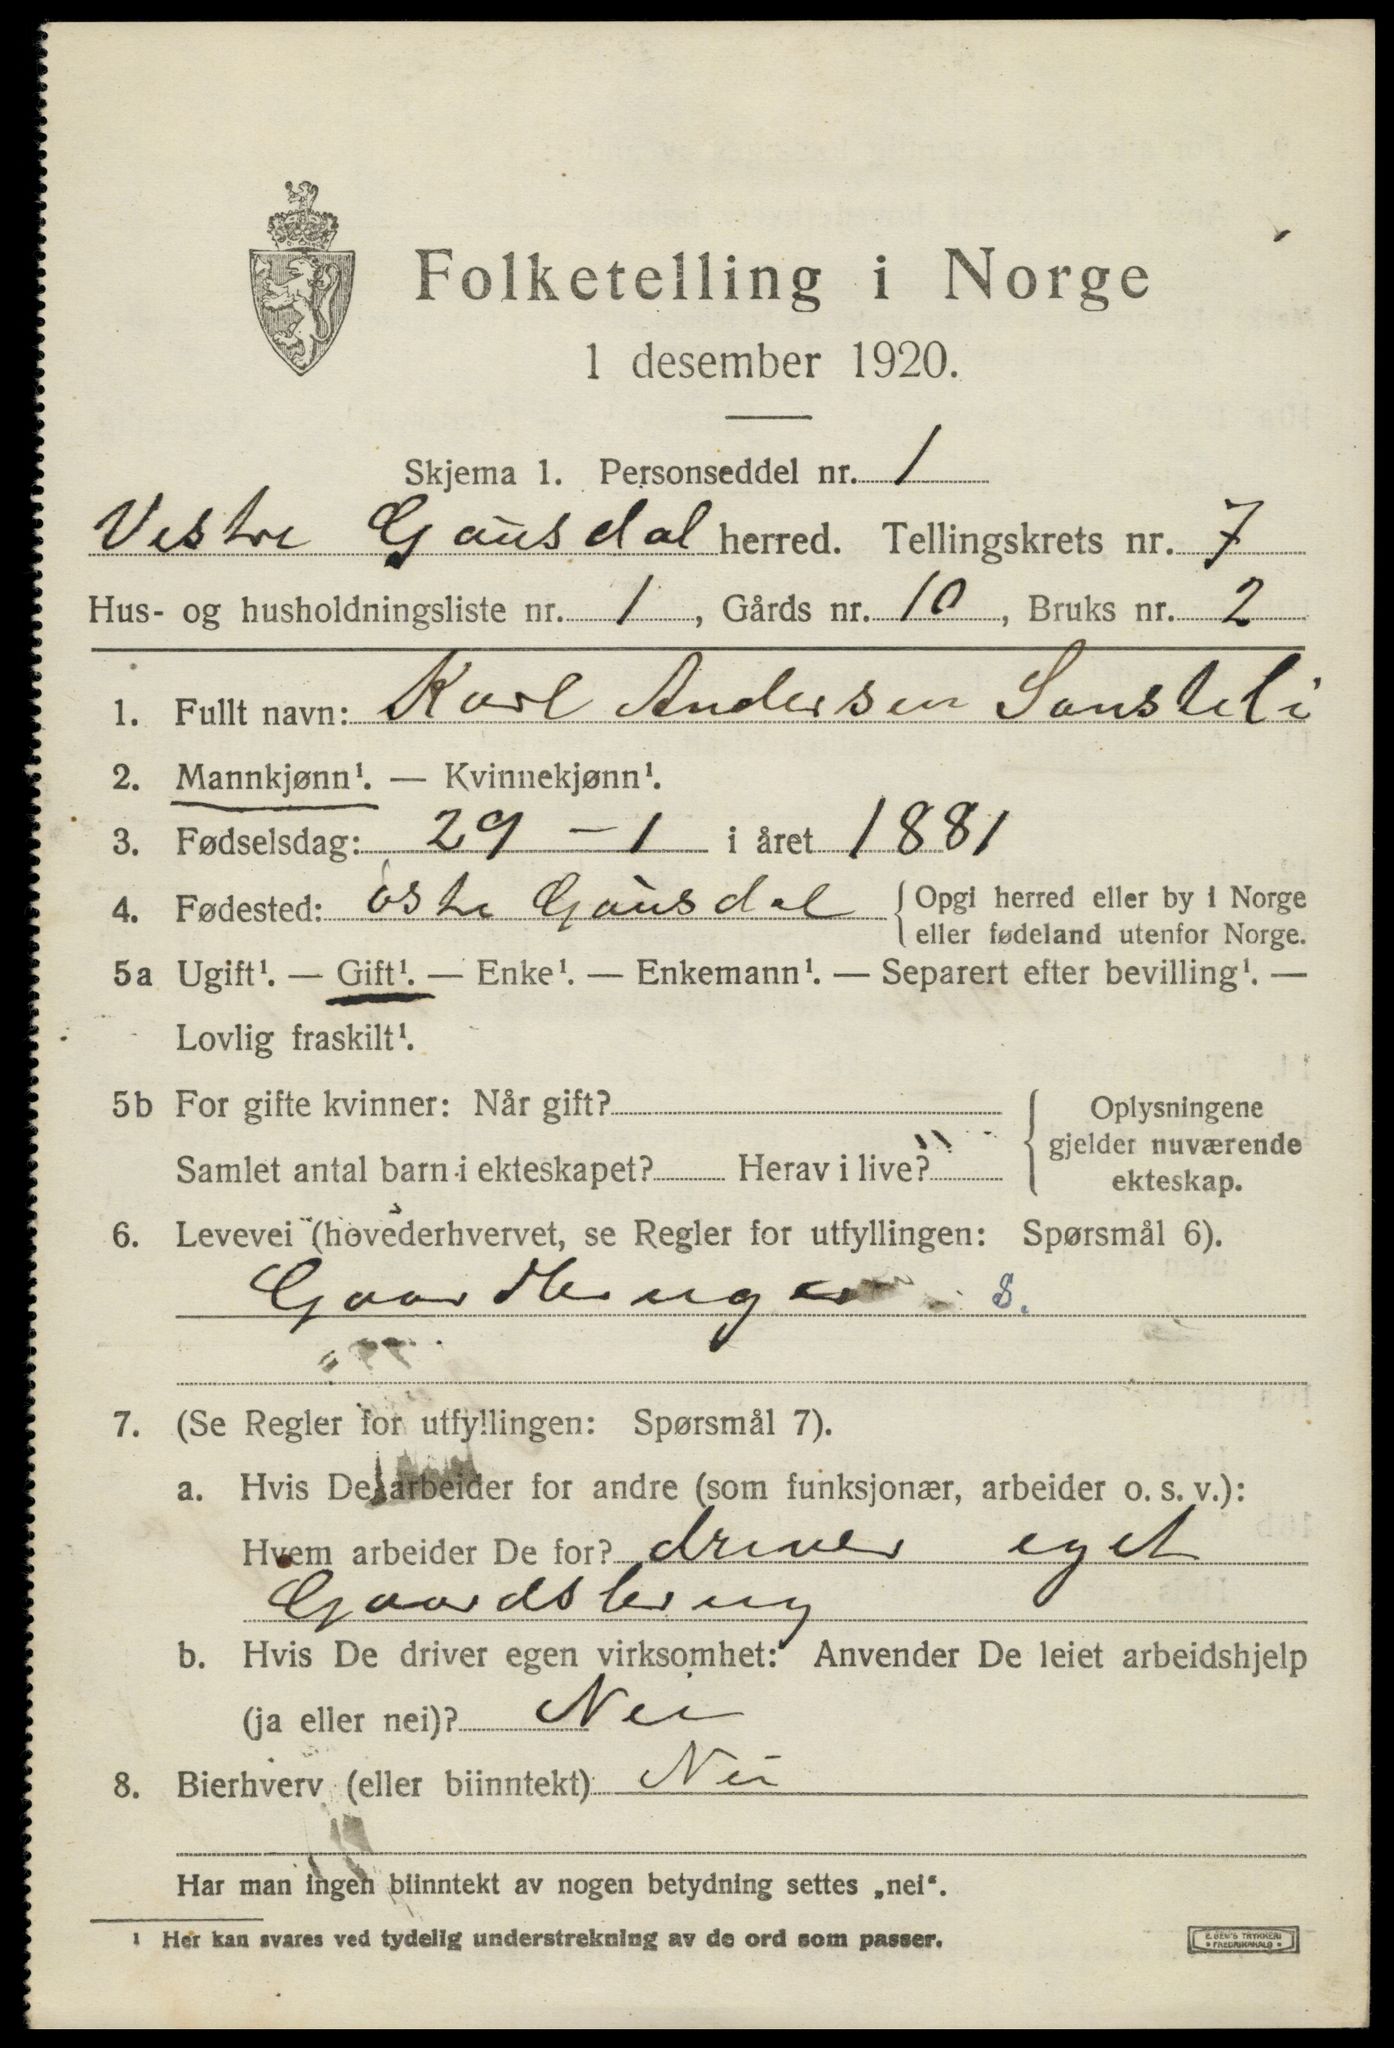 Folketelling i Norge
1 desember 1920.
Skjema 1. Personseddel nr. 1
Vestre Gausdal herred. Tellingskrets nr. 7
Hus- og husholdningsliste nr. 1, Gårds nr. 10, Bruks nr. 2
1. Fullt navn: Karl Andersen
2. Mannkjønn¹. — Kvinnekjønn¹.
3. Fødselsdag: 29 - 1 i året 1881
4. Fødested: østre Gausdal { Opgi herred eller by i Norge
eller fødeland utenfor Norge.
5a Ugift¹. — Gift¹. — Enke¹. — Enkemann¹. — Separert efter bevilling¹. —
Lovlig fraskilt¹.
5b For gifte kvinner: Når gift?
Samlet antal barn i ekteskapet? Herav i live?
Oplysningene
gjelder nuværende
ekteskap.
6. Levevei (hovederhvervet, se Regler for utfyllingen: Spørsmål 6).
Gaardbruger S.
7. (Se Regler for utfyllingen: Spørsmål 7).
a. Hvis De arbeider for andre (som funksjonær, arbeider o. s. v.):
Hvem arbeider De for? driver eget
Gaardsbrug
b. Hvis De driver egen virksomhet: Anvender De leiet arbeidshjelp
(ja eller nei)? Nei
8. Bierhverv (eller biinntekt) Nei
Har man ingen biinntekt av nogen betydning settes „nei“.
¹ Her kan svares ved tydelig understrekning av de ord som passer.
E. SEM'S TRYKKERI
* FREDRIKSHALD *